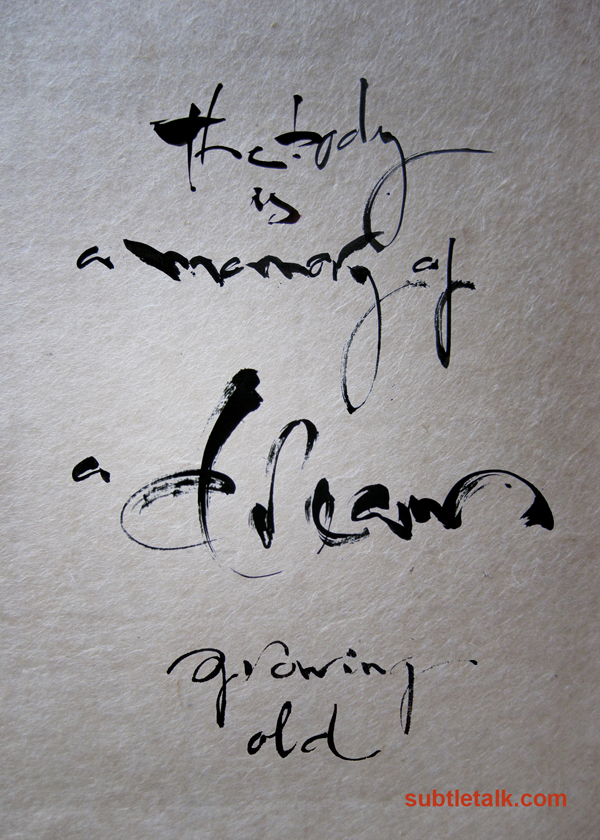 the body
is
a memory of
a dream
growing
old
subtletalk.com